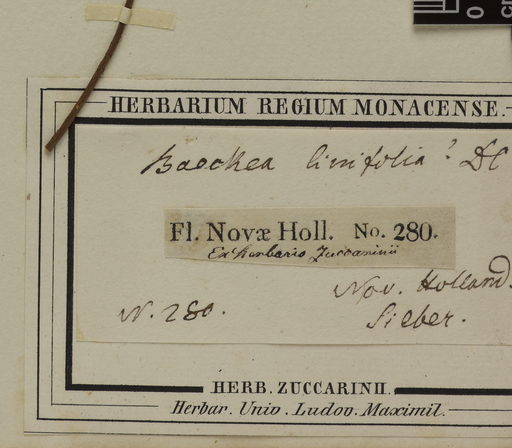 HERBARIUM REGIUM MONACENSE.
Baeckea linifolia? DC
Fl. Novæ Holl. No. 280.
Ex herbario Zuccarinii
Nov. Holland.
N. 280.
Sieber.
HERB. ZUCCARINII.
Herbar. Univ. Ludov. Maximil.